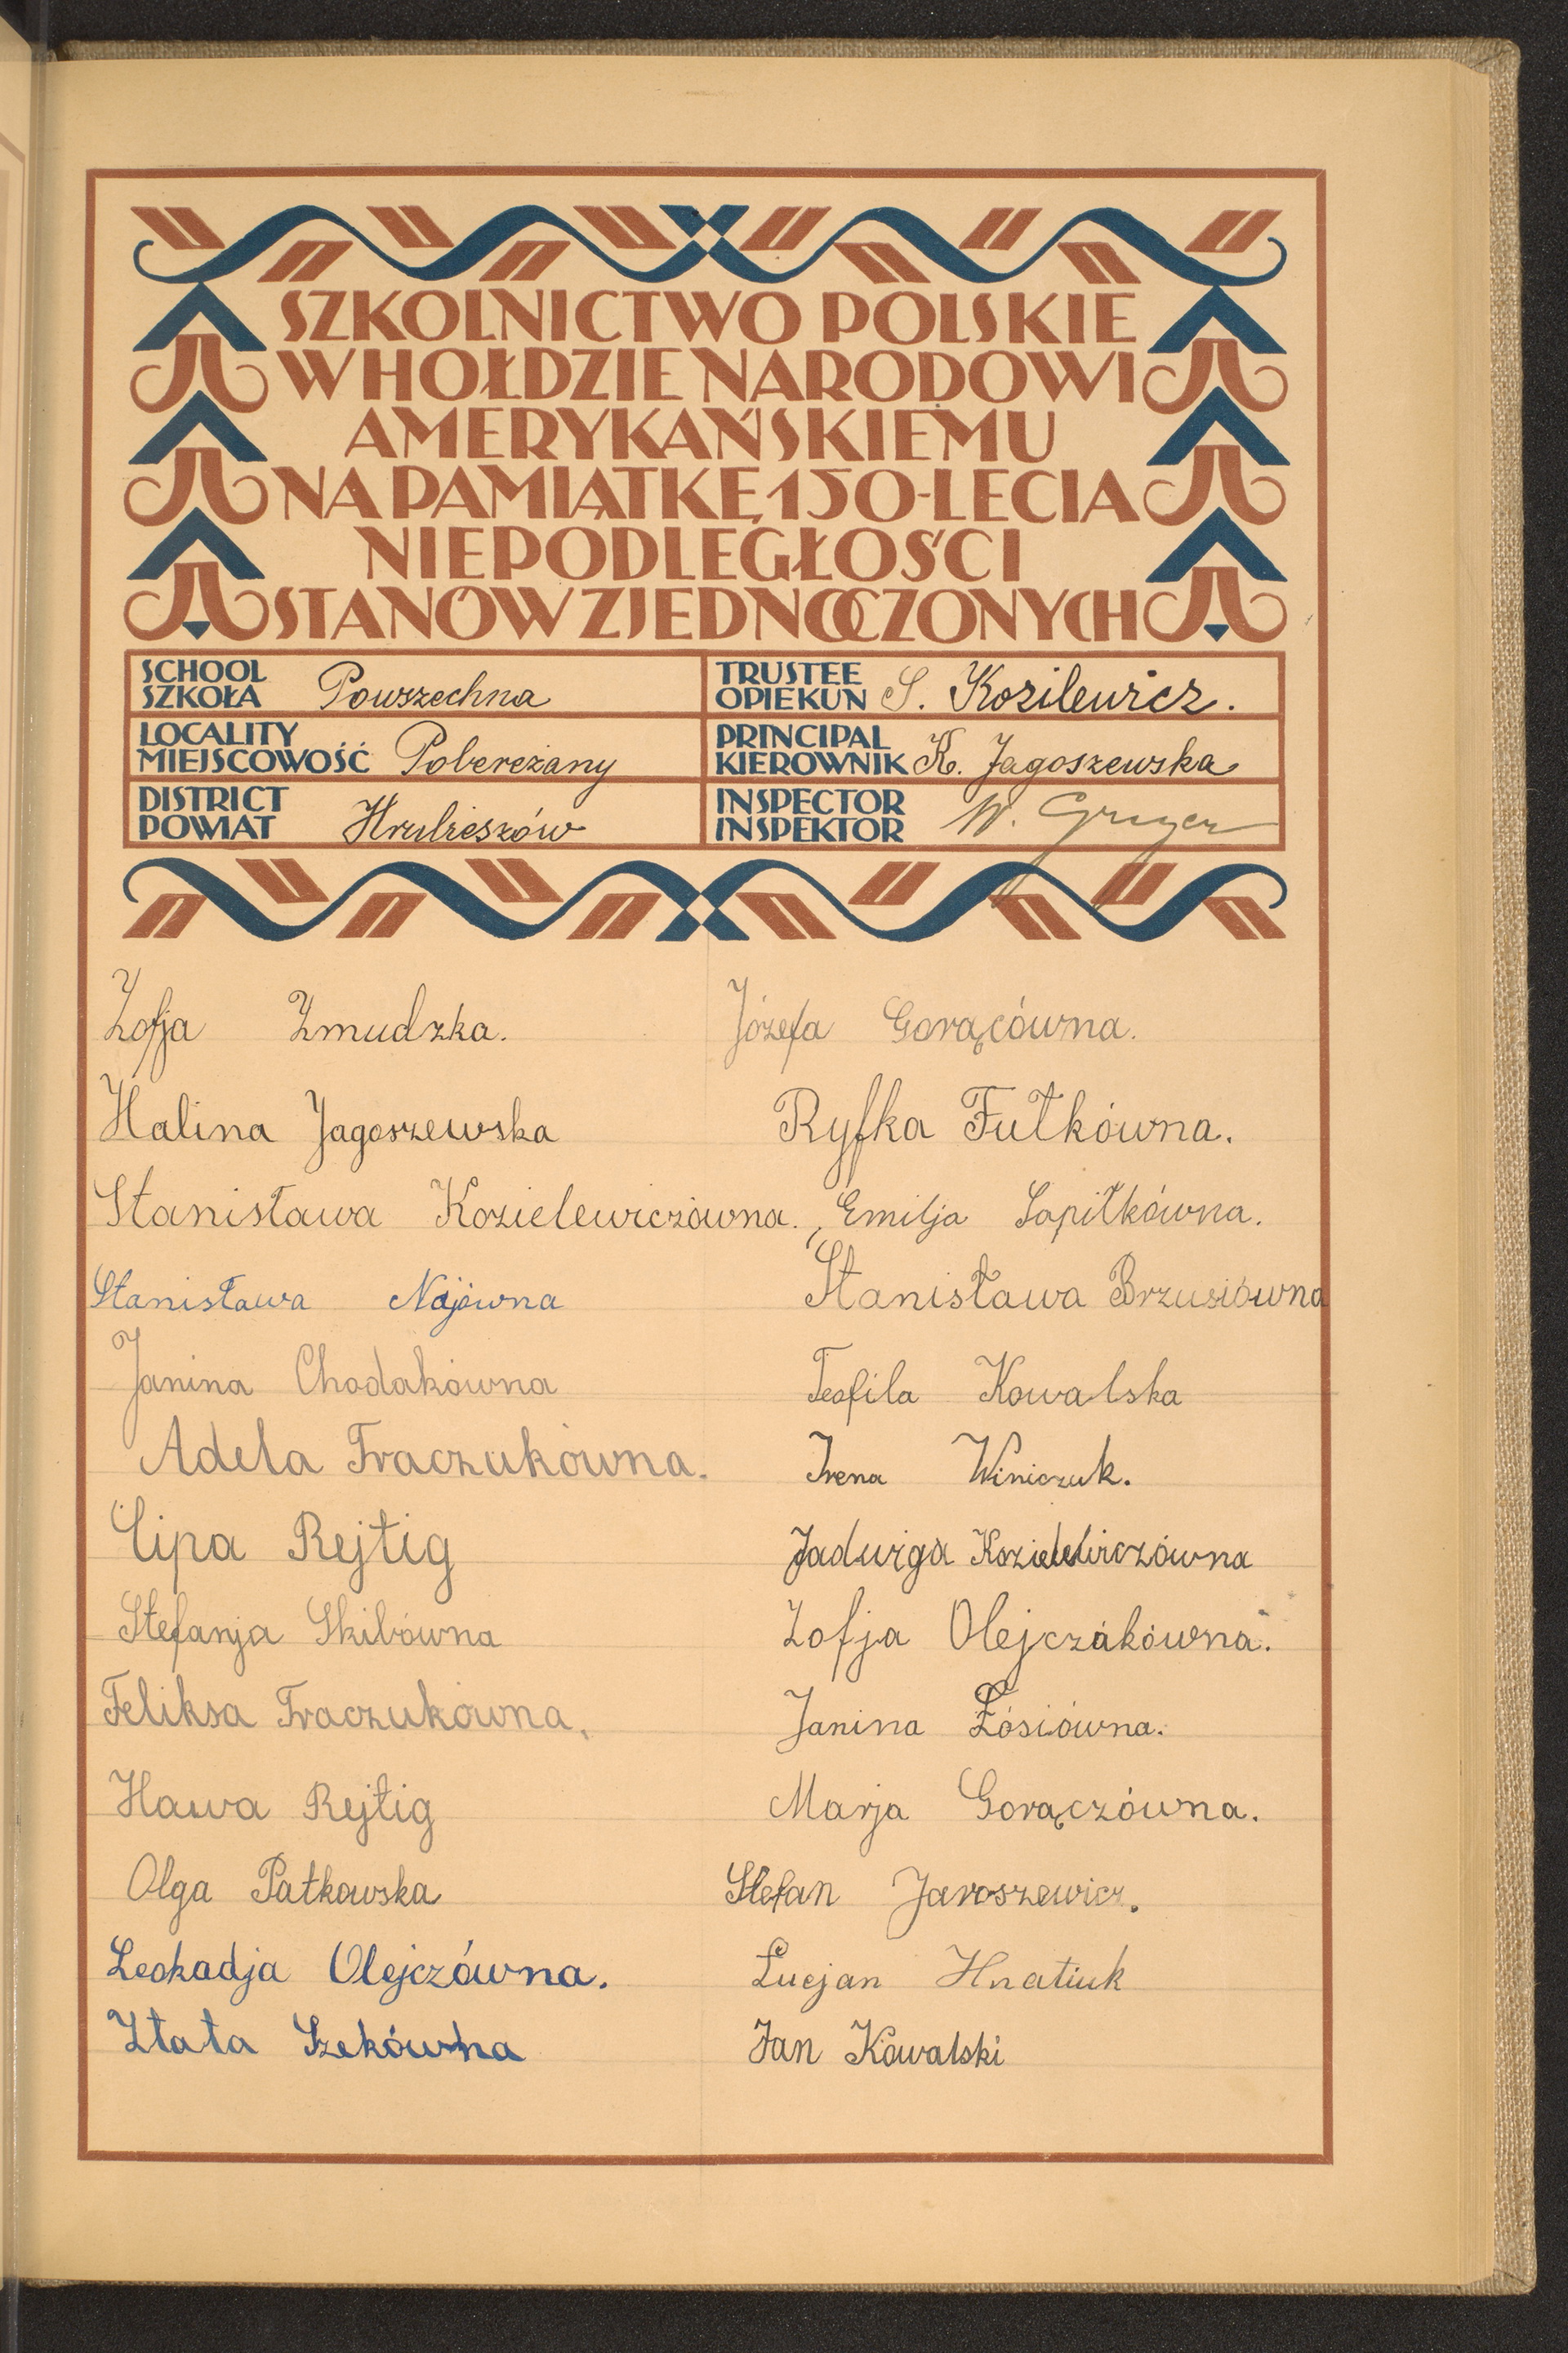 SZKOLNICTWO POLSKIE
W HOŁDZIE NARODOWI
AMERYKAŃSKIEMU
NA PAMIĄTKĘ 150-LECIA
NIEPODLEGŁOŚCI
STANÓW ZJEDNOCZONYCH
SCHOOL
SZKOŁA Powszechna
TRUSTEE
OPIEKUN S. Kozilewicz.
LOCALITY
MIEJSCOWOŚĆ Pobereżany
PRINCIPAL
KIEROWNIK K. Jagoszewska
DISTRICT
POWIAT Hrubieszów
INSPECTOR
INSPEKTOR W.
Zofja Zmudzka.
Józefa Gorącówna.
Halina Jagoszewska
Ryfka Futkówna.
Stanisława Kozielewiczówna.
Emilja Sapiłkówna.
Stanisława Najówna
Stanisława Brzusiówna
Janina Chodakówna
Teofila Kowalska
Adela Traczukówna.
Irena Winiczuk.
Cipa Rejtig
Jadwiga Kozielewiczówna
Stefanja Skibówna
Zofja Olejczakówna.
Feliksa Traczukówna.
Janina Łósiówna.
Hawa Rejtig
Marja Gorączówna.
Olga Patkowska
Stefan Jaroszewicz.
Leokadja Olejczówna.
Lucjan Hnatiuk
Złata Szekówna
Jan Kowalski